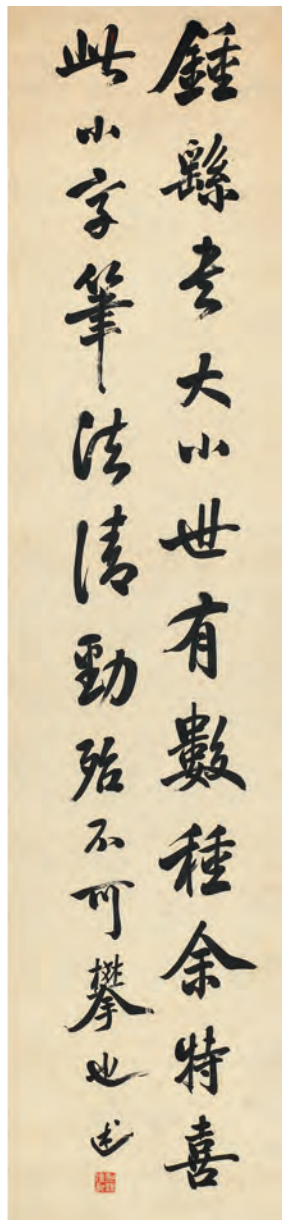 鍾繇書大小世有數種余特喜
此小字筆法清勁殆不可攀也 述